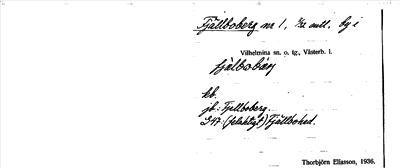 Fjällboberg nr 1, 7/32 mtl. by i
Vilhelmina sn. o. tg., Västerb. l.
fjälbobärj
kb.
jb.: Fjellboberg.
347. (felaktigt) Fjällbohed.
Thorbjörn Eliasson, 1936.